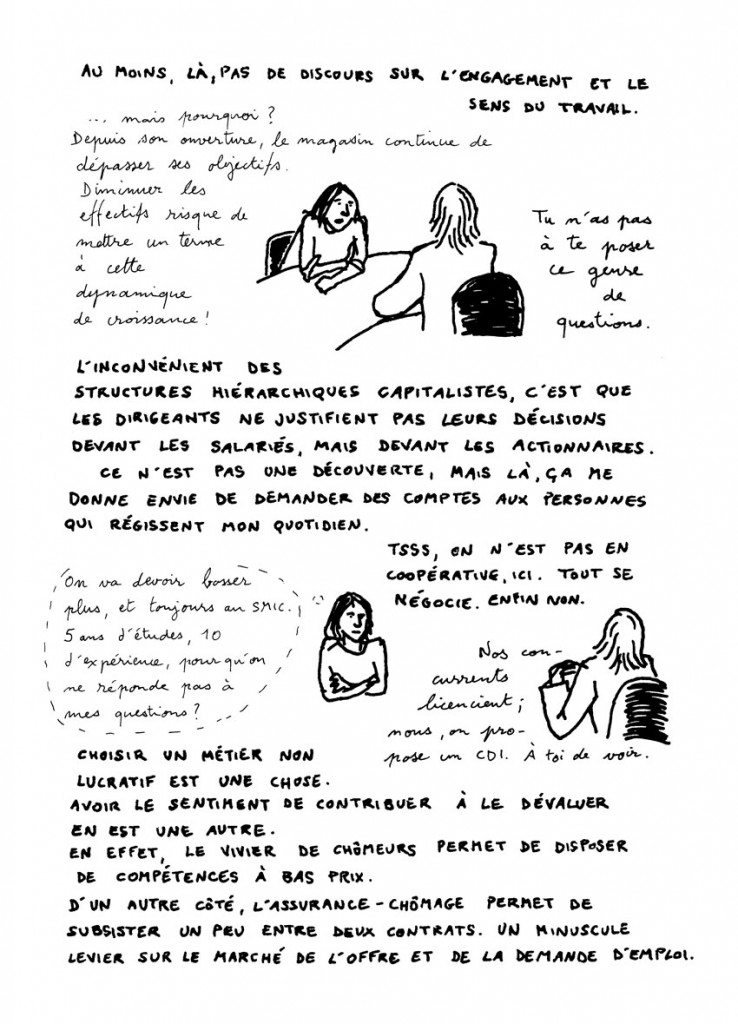 AU MOINS, LÀ, PAS DE DISCOURS SUR L'ENGAGEMENT ET LE
SENS DU TRAVAIL.
... mais pourquoi ?
Depuis son ouverture, le magasin continue de
dépasser ses objectifs.
Diminuer les
effectifs risque de
mettre un terme
à cette
dynamique
de croissance !
Tu n'as pas
à te poser
ce genre
de
questions.
L'INCONVÉNIENT DES
STRUCTURES HIÉRARCHIQUES CAPITALISTES, C'EST QUE
LES DIRIGEANTS NE JUSTIFIENT PAS LEURS DÉCISIONS
DEVANT LES SALARIÉS, MAIS DEVANT LES ACTIONNAIRES.
CE N'EST PAS UNE DÉCOUVERTE, MAIS LÀ, ÇA ME
DONNE ENVIE DE DEMANDER DES COMPTES AUX PERSONNES
QUI RÉGISSENT MON QUOTIDIEN.
TSSS, ON N'EST PAS EN
COOPÉRATIVE, ICI. TOUT SE
NÉGOCIE. ENFIN NON.
On va devoir bosser
plus, et toujours au SMIC.
5 ans d'études, 10
d'expérience, pour qu'on
ne réponde pas à
mes questions ? ...
Nos con-
currents
licencient ;
nous, on pro-
pose un CDI. À toi de voir.
CHOISIR UN MÉTIER NON
LUCRATIF EST UNE CHOSE.
AVOIR LE SENTIMENT DE CONTRIBUER À LE DÉVALUER
EN EST UNE AUTRE.
EN EFFET, LE VIVIER DE CHÔMEURS PERMET DE DISPOSER
DE COMPÉTENCES À BAS PRIX.
D'UN AUTRE CÔTÉ, L'ASSURANCE-CHÔMAGE PERMET DE
SUBSISTER UN PEU ENTRE DEUX CONTRATS. UN MINUSCULE
LEVIER SUR LE MARCHÉ DE L'OFFRE ET DE LA DEMANDE D'EMPLOI.